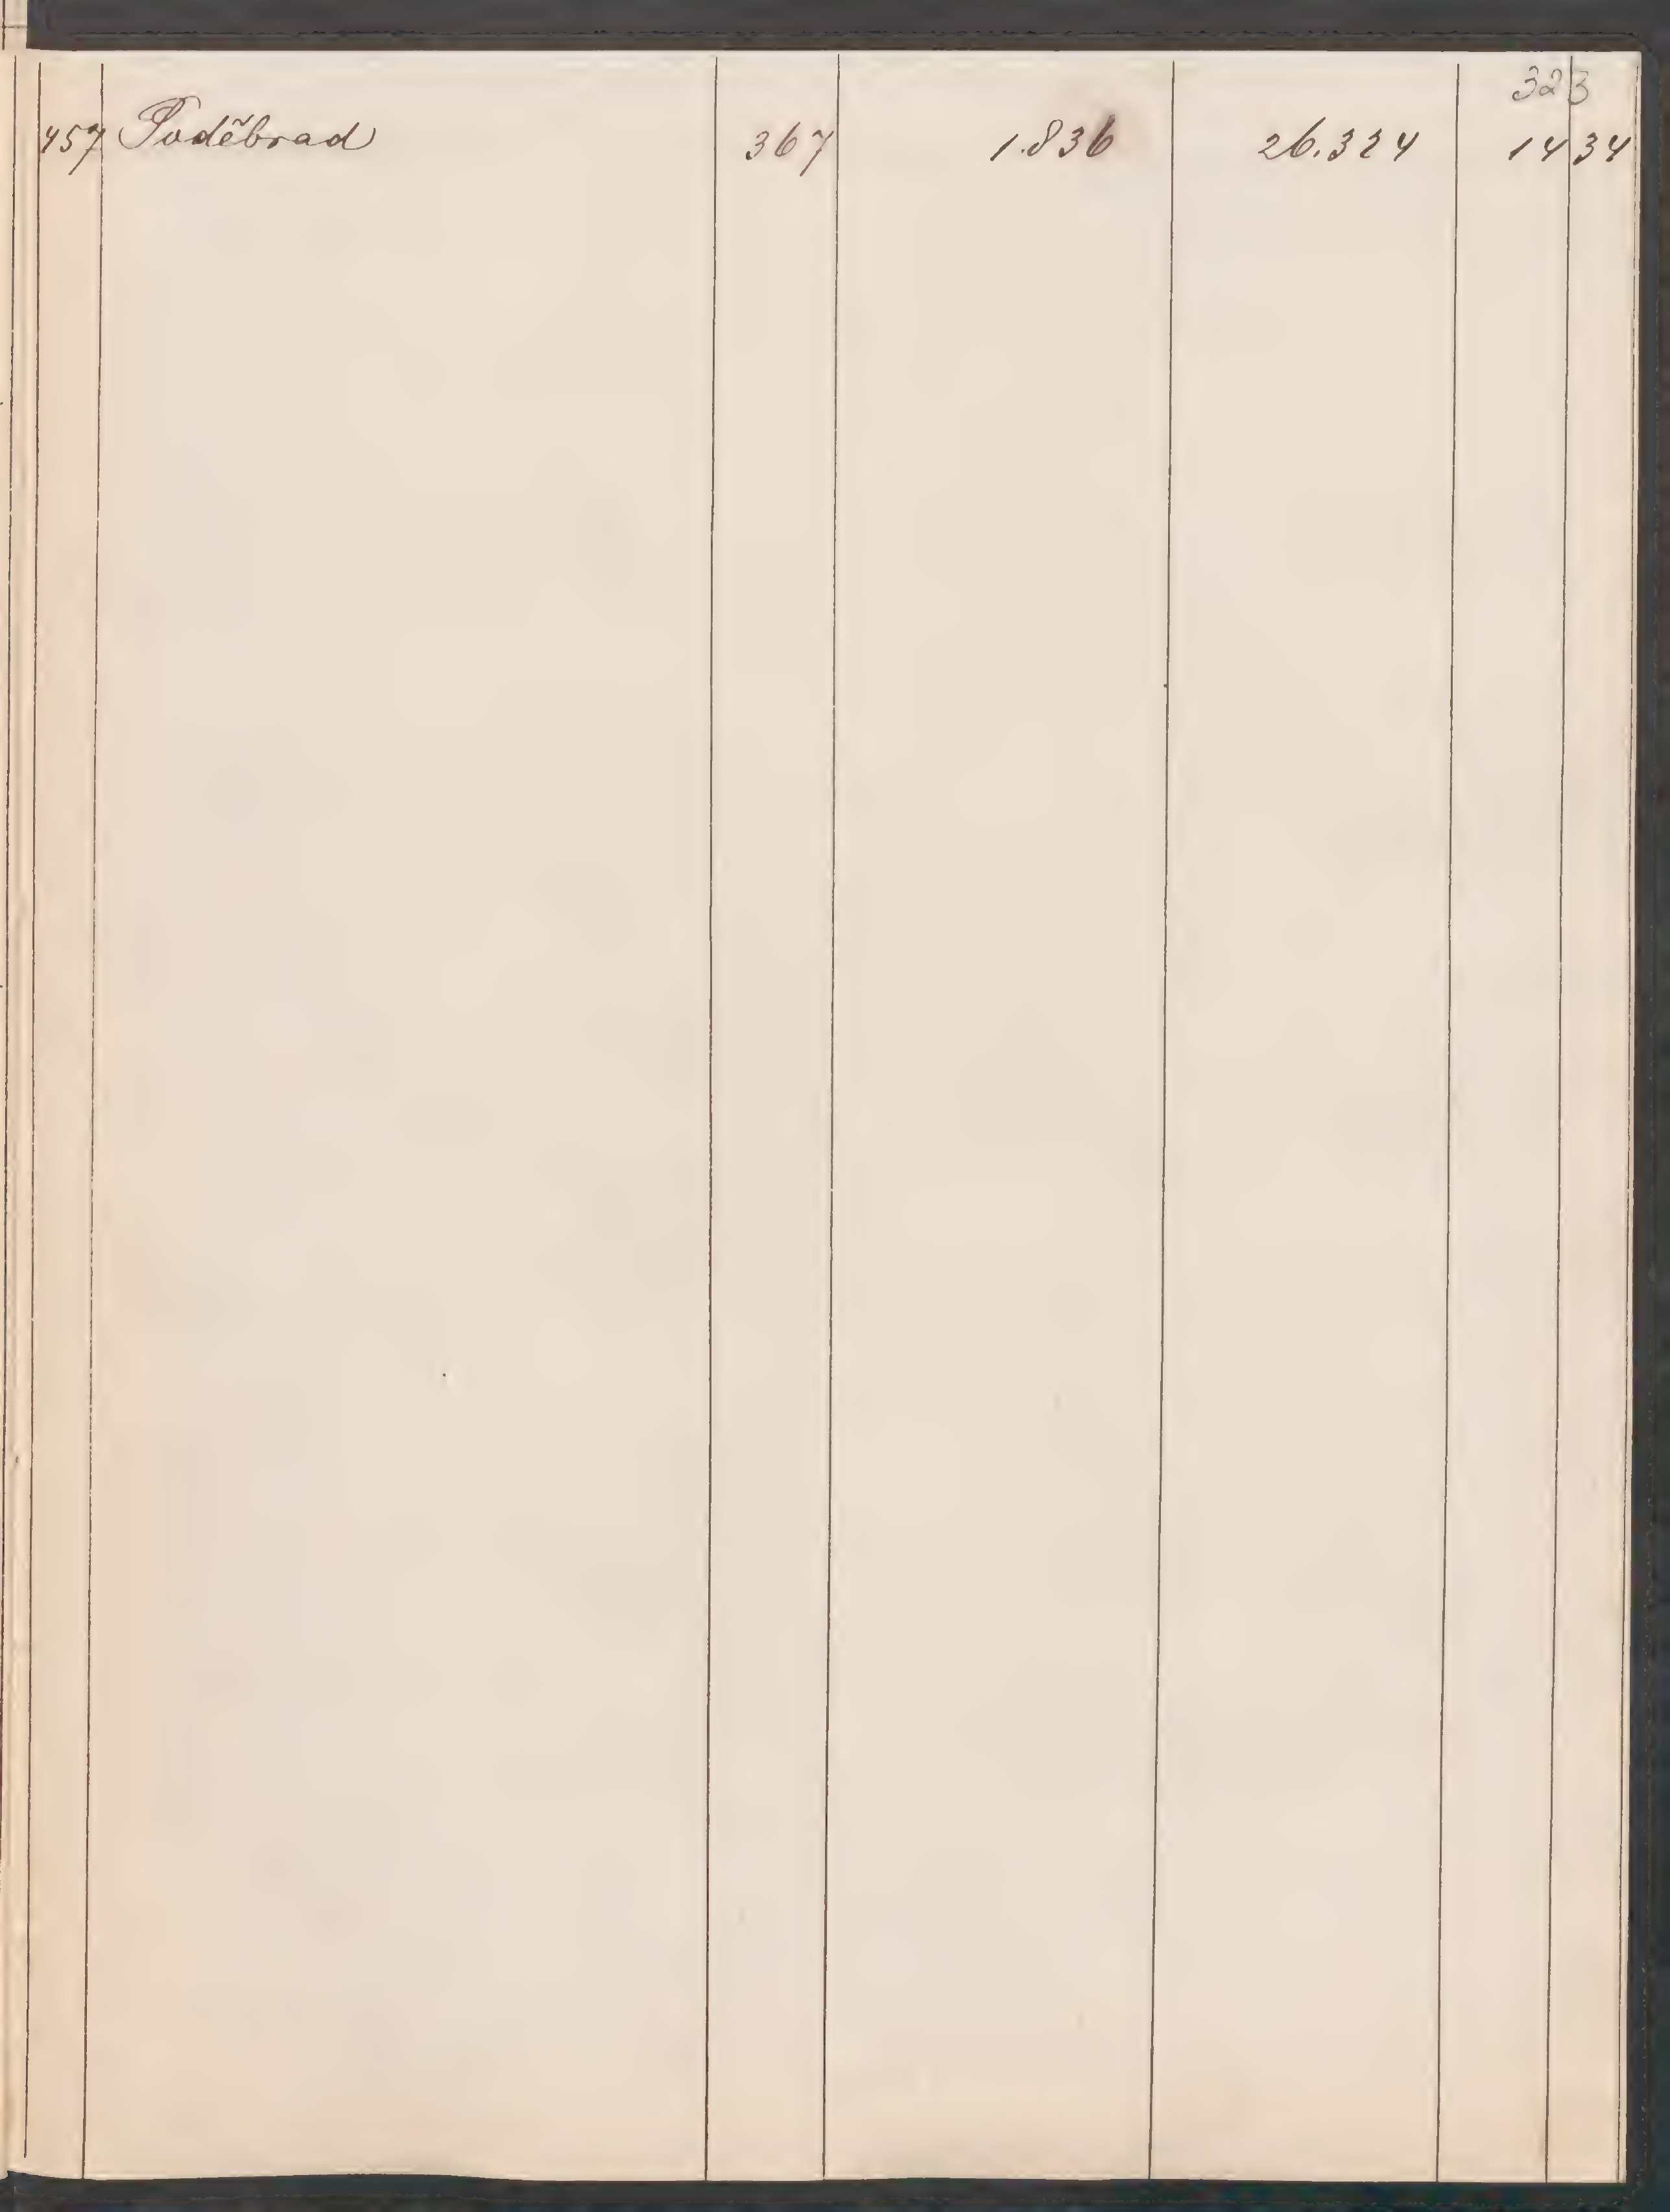 323
457 Poděbrad 367 1.836 26.324 14 34